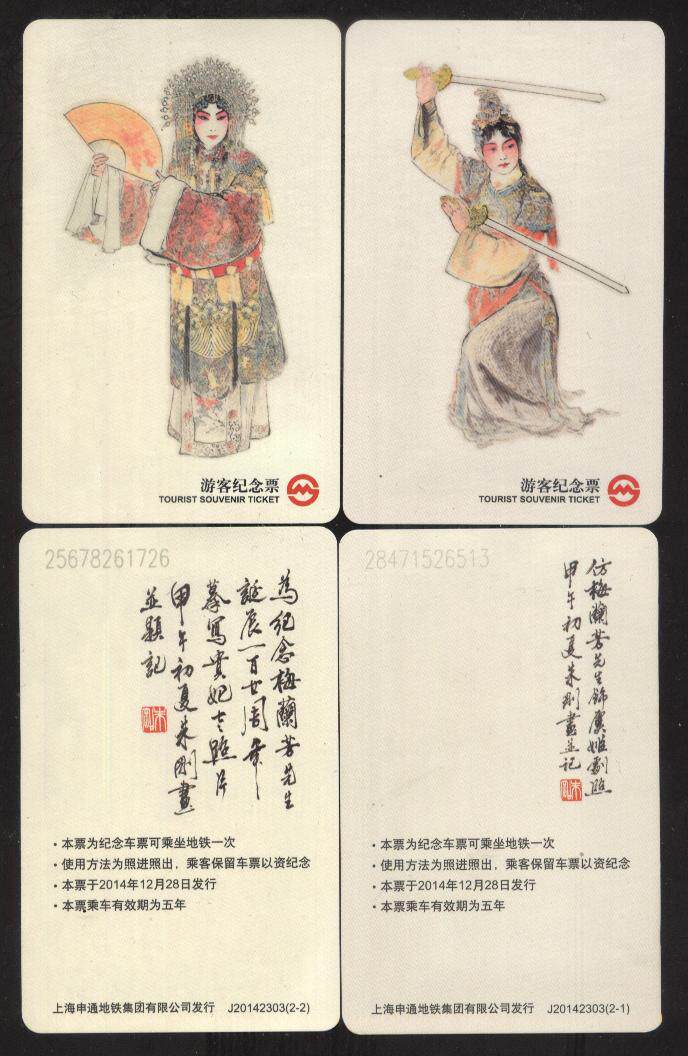 游客纪念票
TOURIST SOUVENIR TICKET
游客纪念票
TOURIST SOUVENIR TICKET
25678261726
為纪念梅蘭芳先生
誕辰一百廿周年
摹寫貴妃之照片
甲午初夏朱刚畫
並題記
·本票为纪念车票可乘坐地铁一次
·使用方法为照进照出，乘客保留车票以资纪念
·本票于2014年12月28日发行
·本票乘车有效期为五年
上海申通地铁集团有限公司发行 J20142303(2-2)
28471526513
仿梅蘭芳先生飾虞姬劇照
甲午初夏朱刚畫並记
·本票为纪念车票可乘坐地铁一次
·使用方法为照进照出，乘客保留车票以资纪念
·本票于2014年12月28日发行
·本票乘车有效期为五年
上海申通地铁集团有限公司发行 J20142303(2-1)